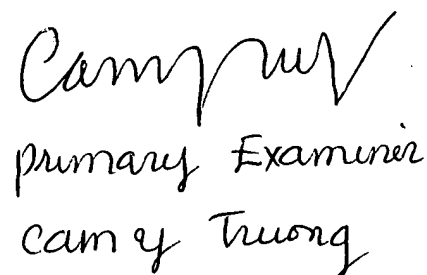 Primary Examiner
Cam Y Truong